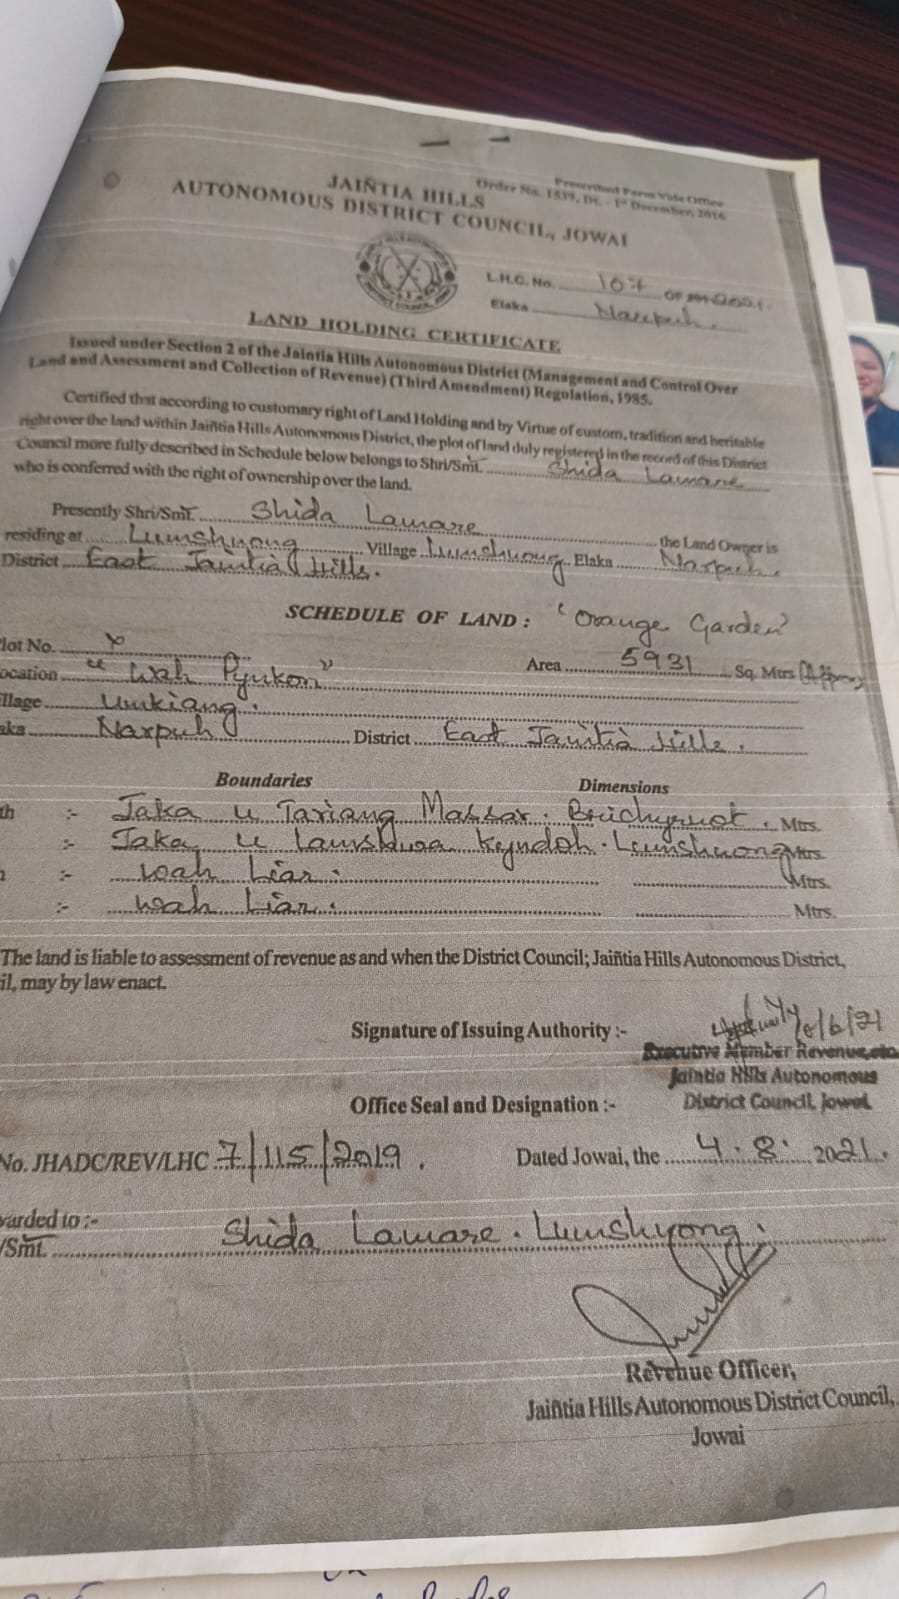 Prescribed Form Vide Office
Order No. 1839, Dt. - 1st December, 2016
JAIÑTIA HILLS
AUTONOMOUS DISTRICT COUNCIL, JOWAI
L.H.C. No. 107 OF 2021.
Elaka Narpuh.
LAND HOLDING CERTIFICATE
Issued under Section 2 of the Jaintia Hills Autonomous District (Management and Control Over
Land and Assessment and Collection of Revenue) (Third Amendment) Regulation, 1985.
Certified that according to customary right of Land Holding and by Virtue of custom, tradition and heritable
right over the land within Jaiñtia Hills Autonomous District, the plot of land duly registered in the record of this District
Council more fully described in Schedule below belongs to Shri/Smt. Shida Lamare
who is conferred with the right of ownership over the land.
Presently Shri/Smt. Shida Lamare the Land Owner is
residing at Lumshyong Village Lumshyong Elaka Narpuh.
District East Jaintia Hills.
SCHEDULE OF LAND : 'Orange Garden'
lot No.
ocation "Wah Pyrkon" Area 5931 Sq. Mtrs
illage Umkiang.
aka Narpuh District East Jaintia Hills.
Boundaries Dimensions
th :- Jaka u Tariang Massar. Mtrs.
:- Jaka u Kyndoh. Lumshnong Mtrs.
:- Wah Liar. Mtrs.
:- Wah Liar. Mtrs.
The land is liable to assessment of revenue as and when the District Council; Jaiñtia Hills Autonomous District,
il, may by law enact.
Signature of Issuing Authority :- /6/21
Executive Member Revenue, etc.
Jaintia Hills Autonomous
District Council, Jowai
Office Seal and Designation :-
No. JHADC/REV/LHC 7/115/2019. Dated Jowai, the 4.8.2021.
varded to :-
/Smt. Shida Lamare. Lumshyong.
Revenue Officer,
Jaiñtia Hills Autonomous District Council,
Jowai